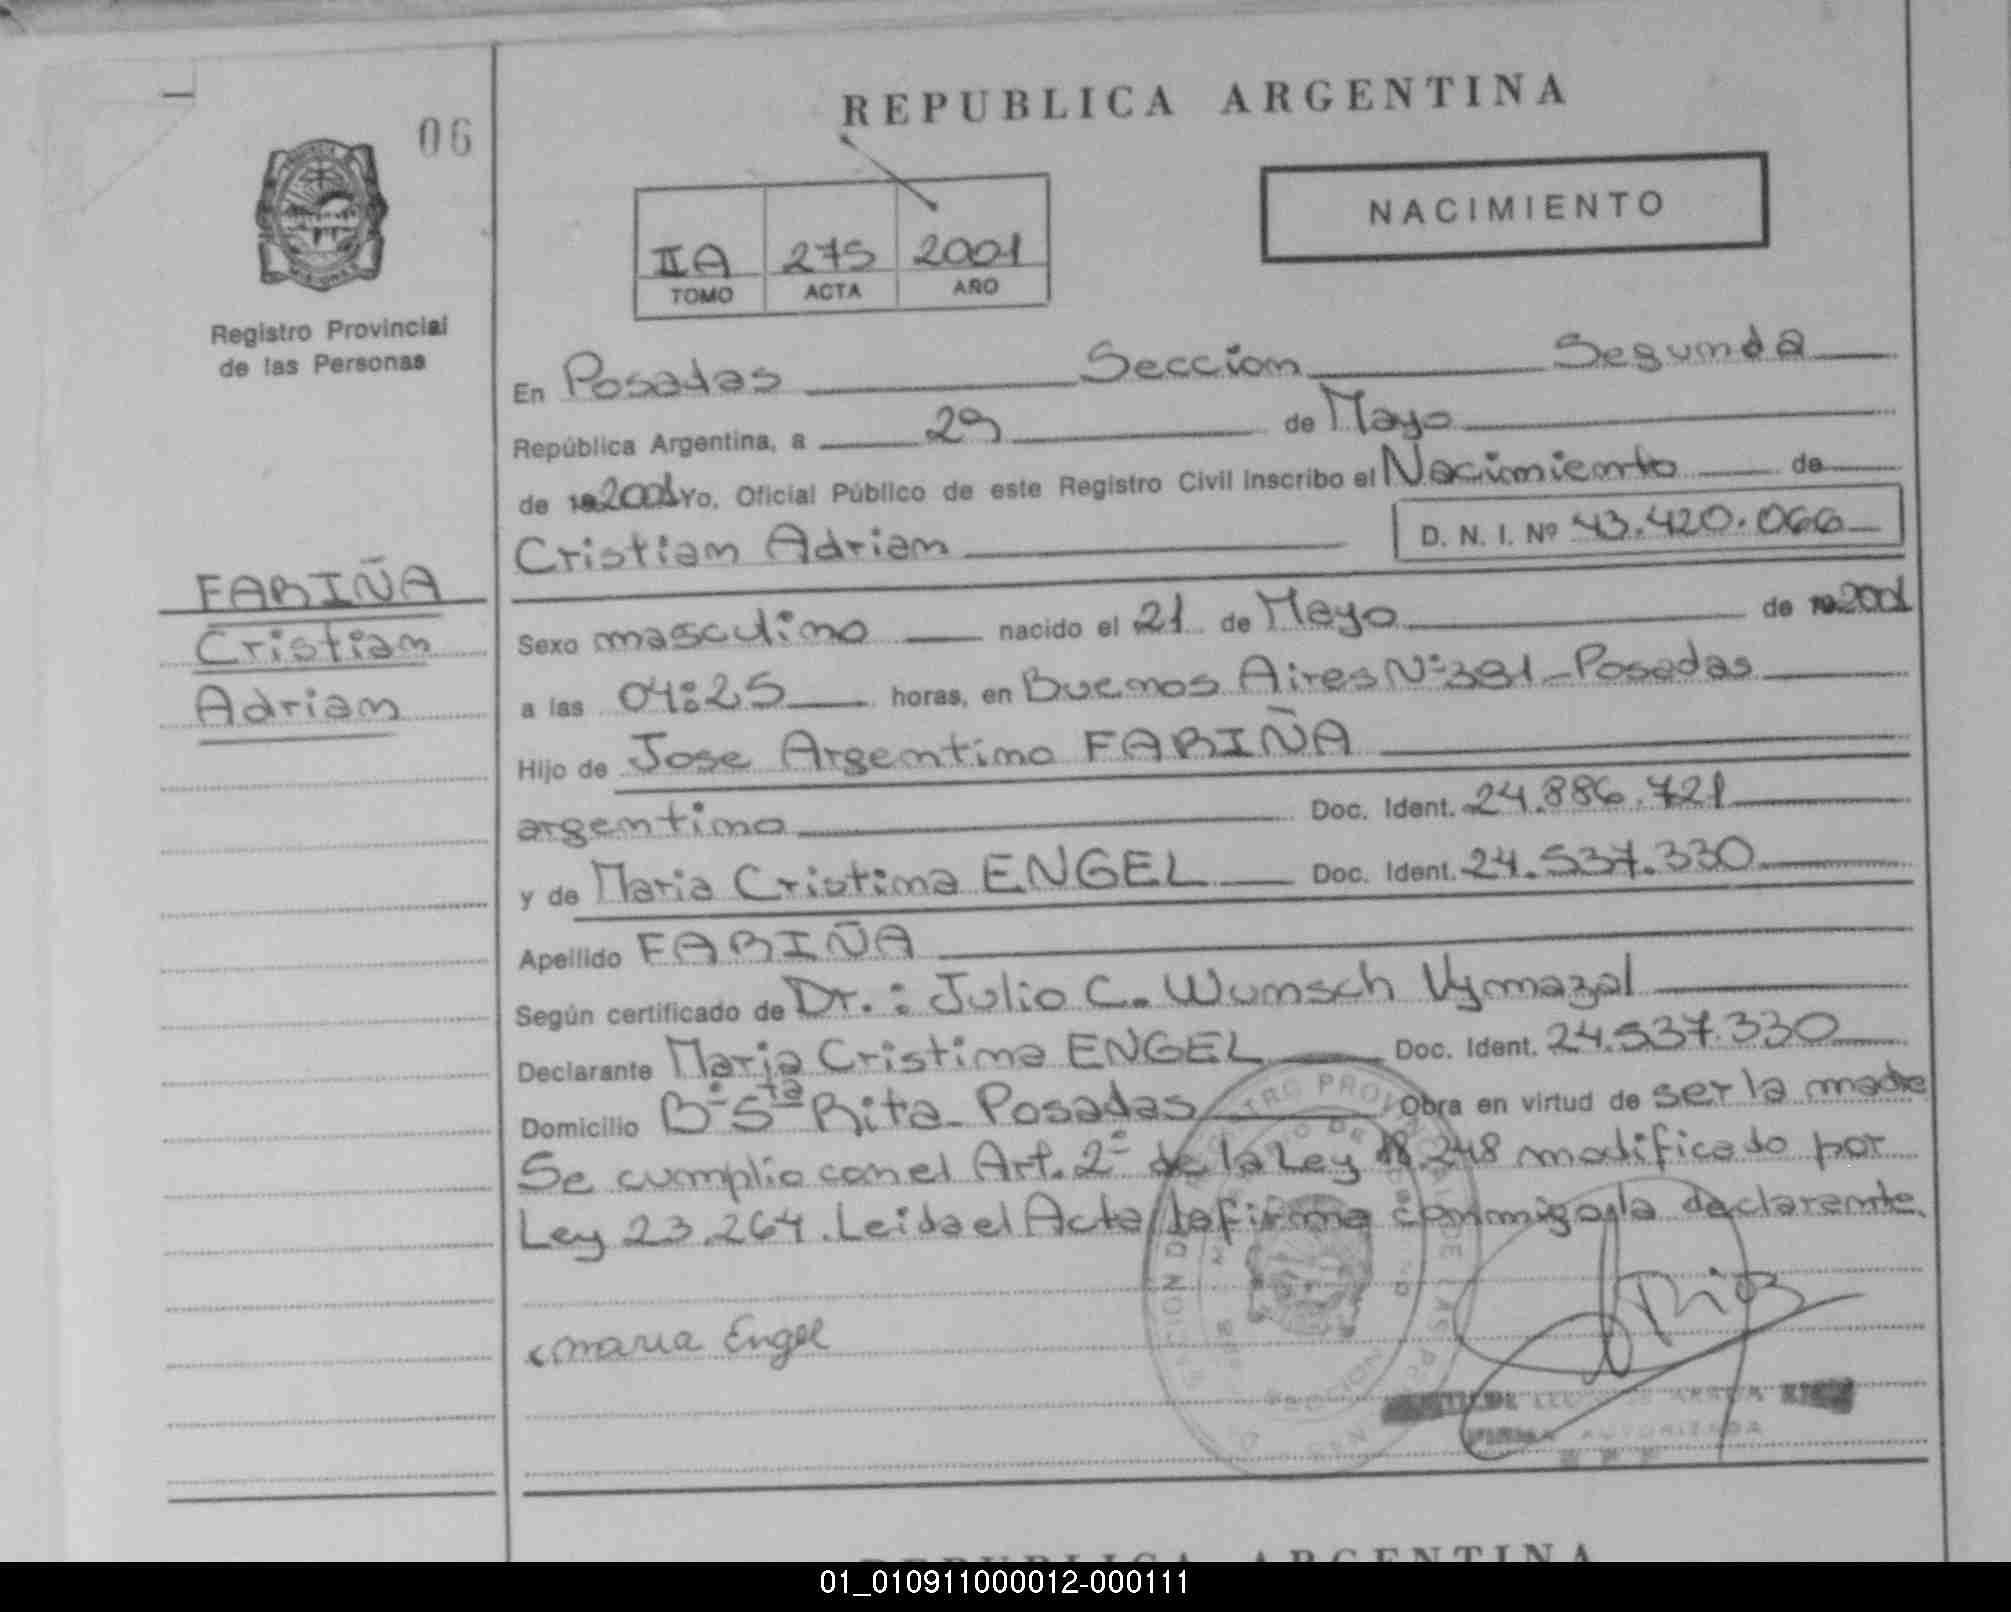 06
Registro Provincial
de las Personas
FARIÑA
Cristian
Adrian
REPUBLICA ARGENTINA
NACIMIENTO
IIA 275 2001
TOMO ACTA AÑO
En Posadas Seccion Segunda
República Argentina, a 29 de Mayo
de 19 2001 Yo, Oficial Público de este Registro Civil inscribo el Nacimiento de
Cristian Adrian D. N. I. Nº 43.420.066
Sexo masculino nacido el 21 de Mayo de 19 2001
a las 04:25 horas, en Buenos Aires Nº 381 - Posadas
Hijo de Jose Argentino FARIÑA
argentino Doc. Ident. 24.886.721
y de Maria Cristina ENGEL Doc. Ident. 24.537.330
Apellido FARIÑA
Según certificado de Dr.: Julio C. Wunsch Vymazal
Declarante Maria Cristina ENGEL Doc. Ident. 24.537.330
Domicilio Bº Sta Rita - Posadas Obra en virtud de ser la madre
Se cumplio con el Art. 2º de la Ley 18.248 modificado por
Ley 23.264. Leida el Acta la firma conmigo la declarante.
maria Engel
FIRMA AUTORIZADA
REPUBLICA ARGENTINA
01_010911000012-000111